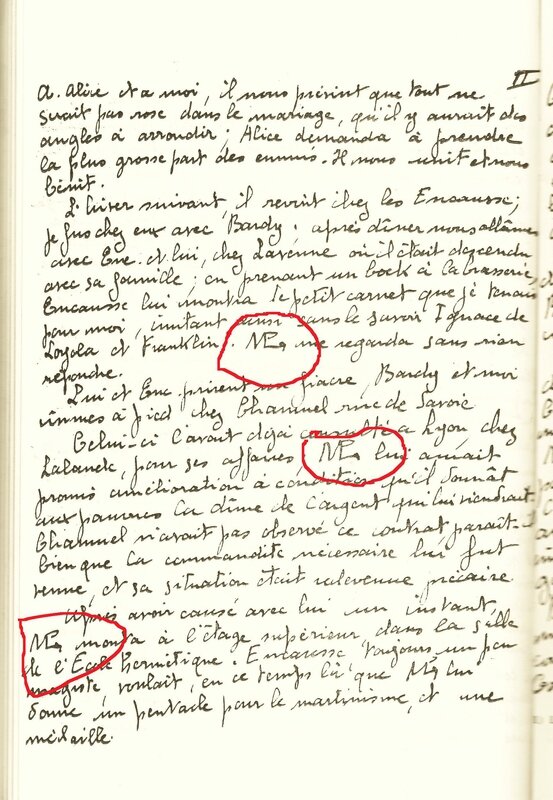 II
A. Alice et a moi, il nous prévint que tout ne
serait pas rose dans le mariage, qu'il y aurait des
angles à arrondir ; Alice demanda à prendre
la plus grosse part des ennuis. Il nous unit et nous
bénit.
L'hiver suivant, il revint chez les Encausse ;
je fus chez eux avec Bardy ; après dîner nous allâmes
avec Enc. et lui, chez Lavenne où il était descendu
avec sa famille ; en prenant un bock à la brasserie,
Encausse lui montra le petit carnet que je tenais
pour moi, imitant ainsi sans le savoir Ignace de
Loyola et Franklin. me regarda sans rien
répondre.
Lui et Enc. prirent un fiacre, Bardy et moi
vînmes à pied chez Chamuel rue de Savoie
Celui-ci l'avait déjà consulté à Lyon chez
Lalande, pour ses affaires lui avait
promis amélioration à condition qu'il donnât
aux pauvres la dîme de l'argent qui lui viendrait
Chamuel n'avait pas observé ce contrat paraît-
bien que la commandite nécessaire lui fut
venue, et sa situation était redevenue précaire.
Après avoir causé avec lui un instant,
monta à l'étage supérieur, dans la salle
de l'École hermétique. Encausse toujours un peu
magiste, voulait, en ce temps là que lui
donne un pentacle pour le martinisme, et une
médaille.